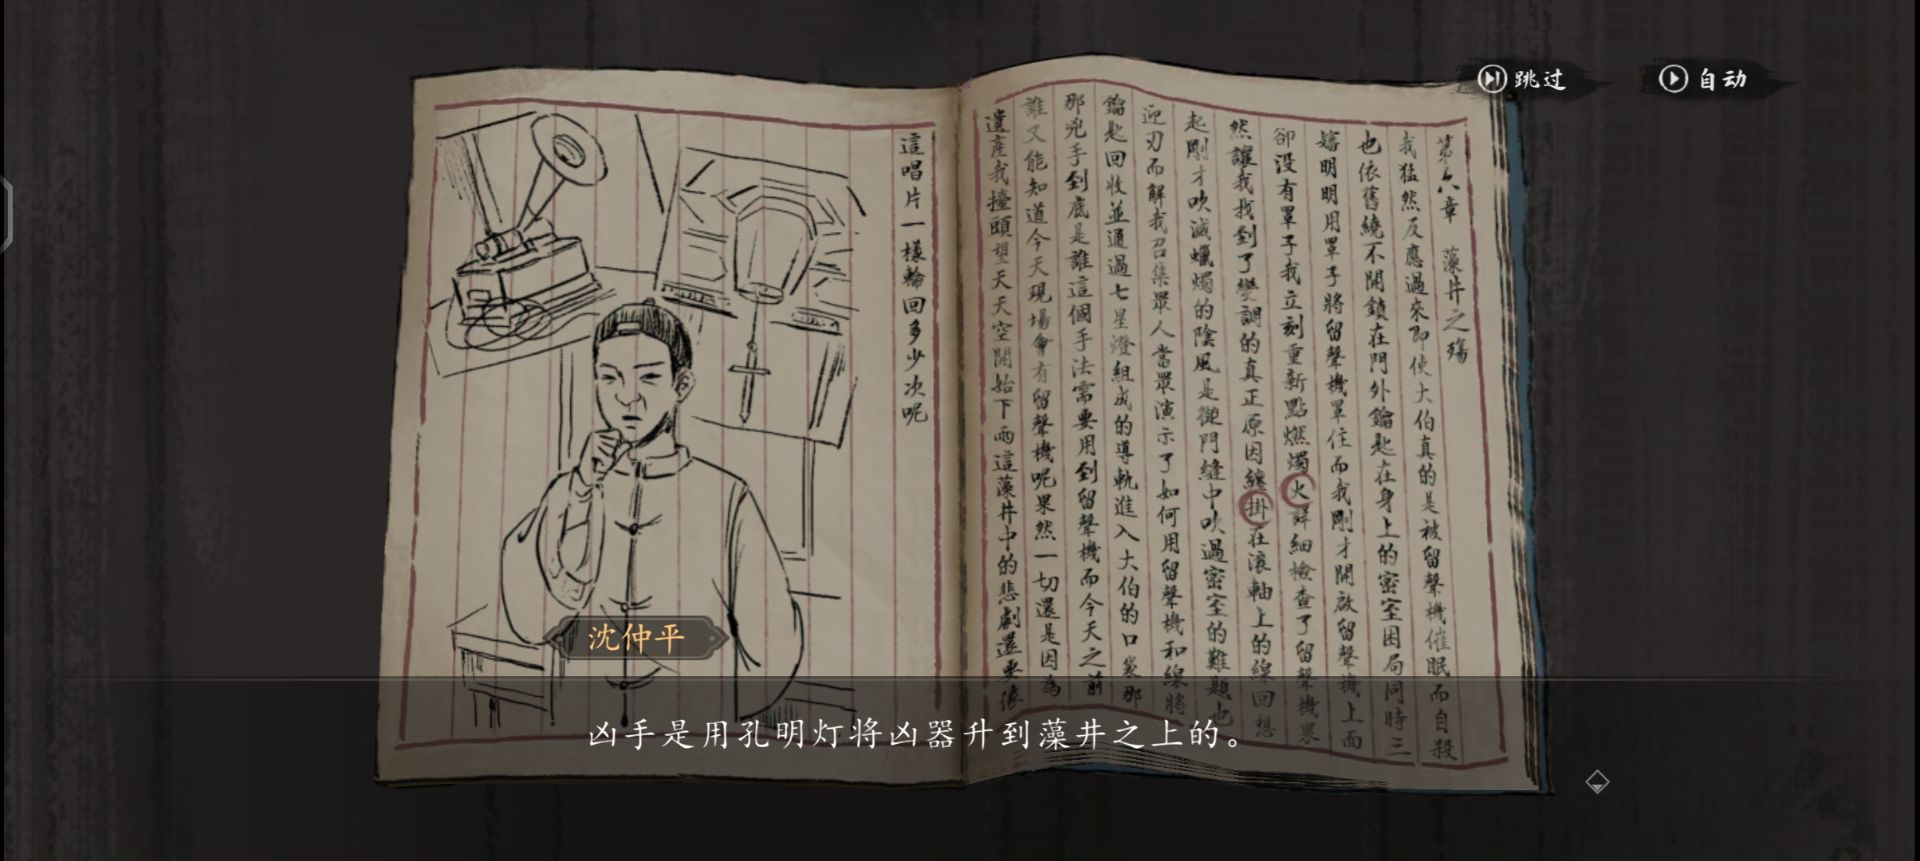 跳过
自动
第六章 藻井之殤
我猛然反應過來即使大伯真的是被留聲機催眠而自殺
也依舊繞不開鎖在門外鑰匙在身上的密室困局同時三
嬸明明用罩子將留聲機罩住而我剛才開啟留聲機上面
卻沒有罩子我立刻重新點燃燭火詳細檢查了留聲機果
然讓我找到了變調的真正原因纏掛在滾軸上的線回想
起剛才吹滅蠟燭的陰風是從門縫中吹過密室的難題也
迎刃而解我召集眾人當眾演示了如何用留聲機和線將
鑰匙回收並通過七星燈組成的導軌進入大伯的口袋那
那兇手到底是誰這個手法需要用到留聲機而今天之前
誰又能知道今天現場會有留聲機呢果然一切還是因為
遺產我擡頭望天天空開始下雨這藻井中的悲劇還要像
這唱片一樣輪回多少次呢
沈仲平
凶手是用孔明灯将凶器升到藻井之上的。